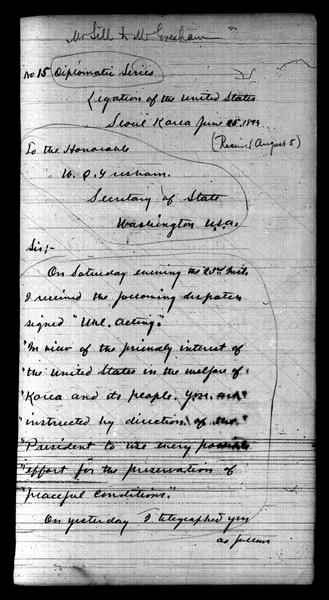 Mr Sill to Mr Gresham
No 15 Diplomatic Series
Legation of the United States
Seoul Korea June 25 1894
(Received August 5)
To the Honorable
W. Q. Gresham.
Secretary of State
Washington U.S.A.
Sir;-
On Saturday evening the 23rd Inst.
I received the following dispatch
signed "Uhl. Acting."
"In view of the friendly interest of
"the United States in the welfare of
"Korea and its people. You are
"instructed by direction of the
"President to use every possible
"effort for the preservation of
"peaceful conditions."
On yesterday I telegraphed you
as follows